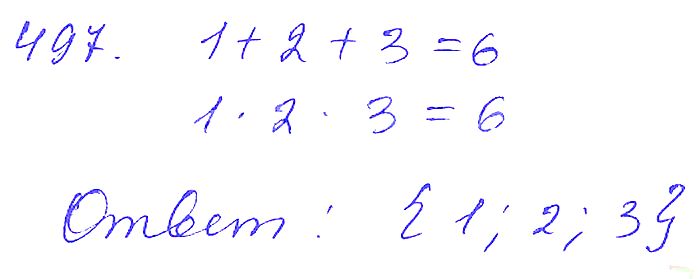 497. 1 + 2 + 3 = 6
1 · 2 · 3 = 6
Ответ: {1; 2; 3}